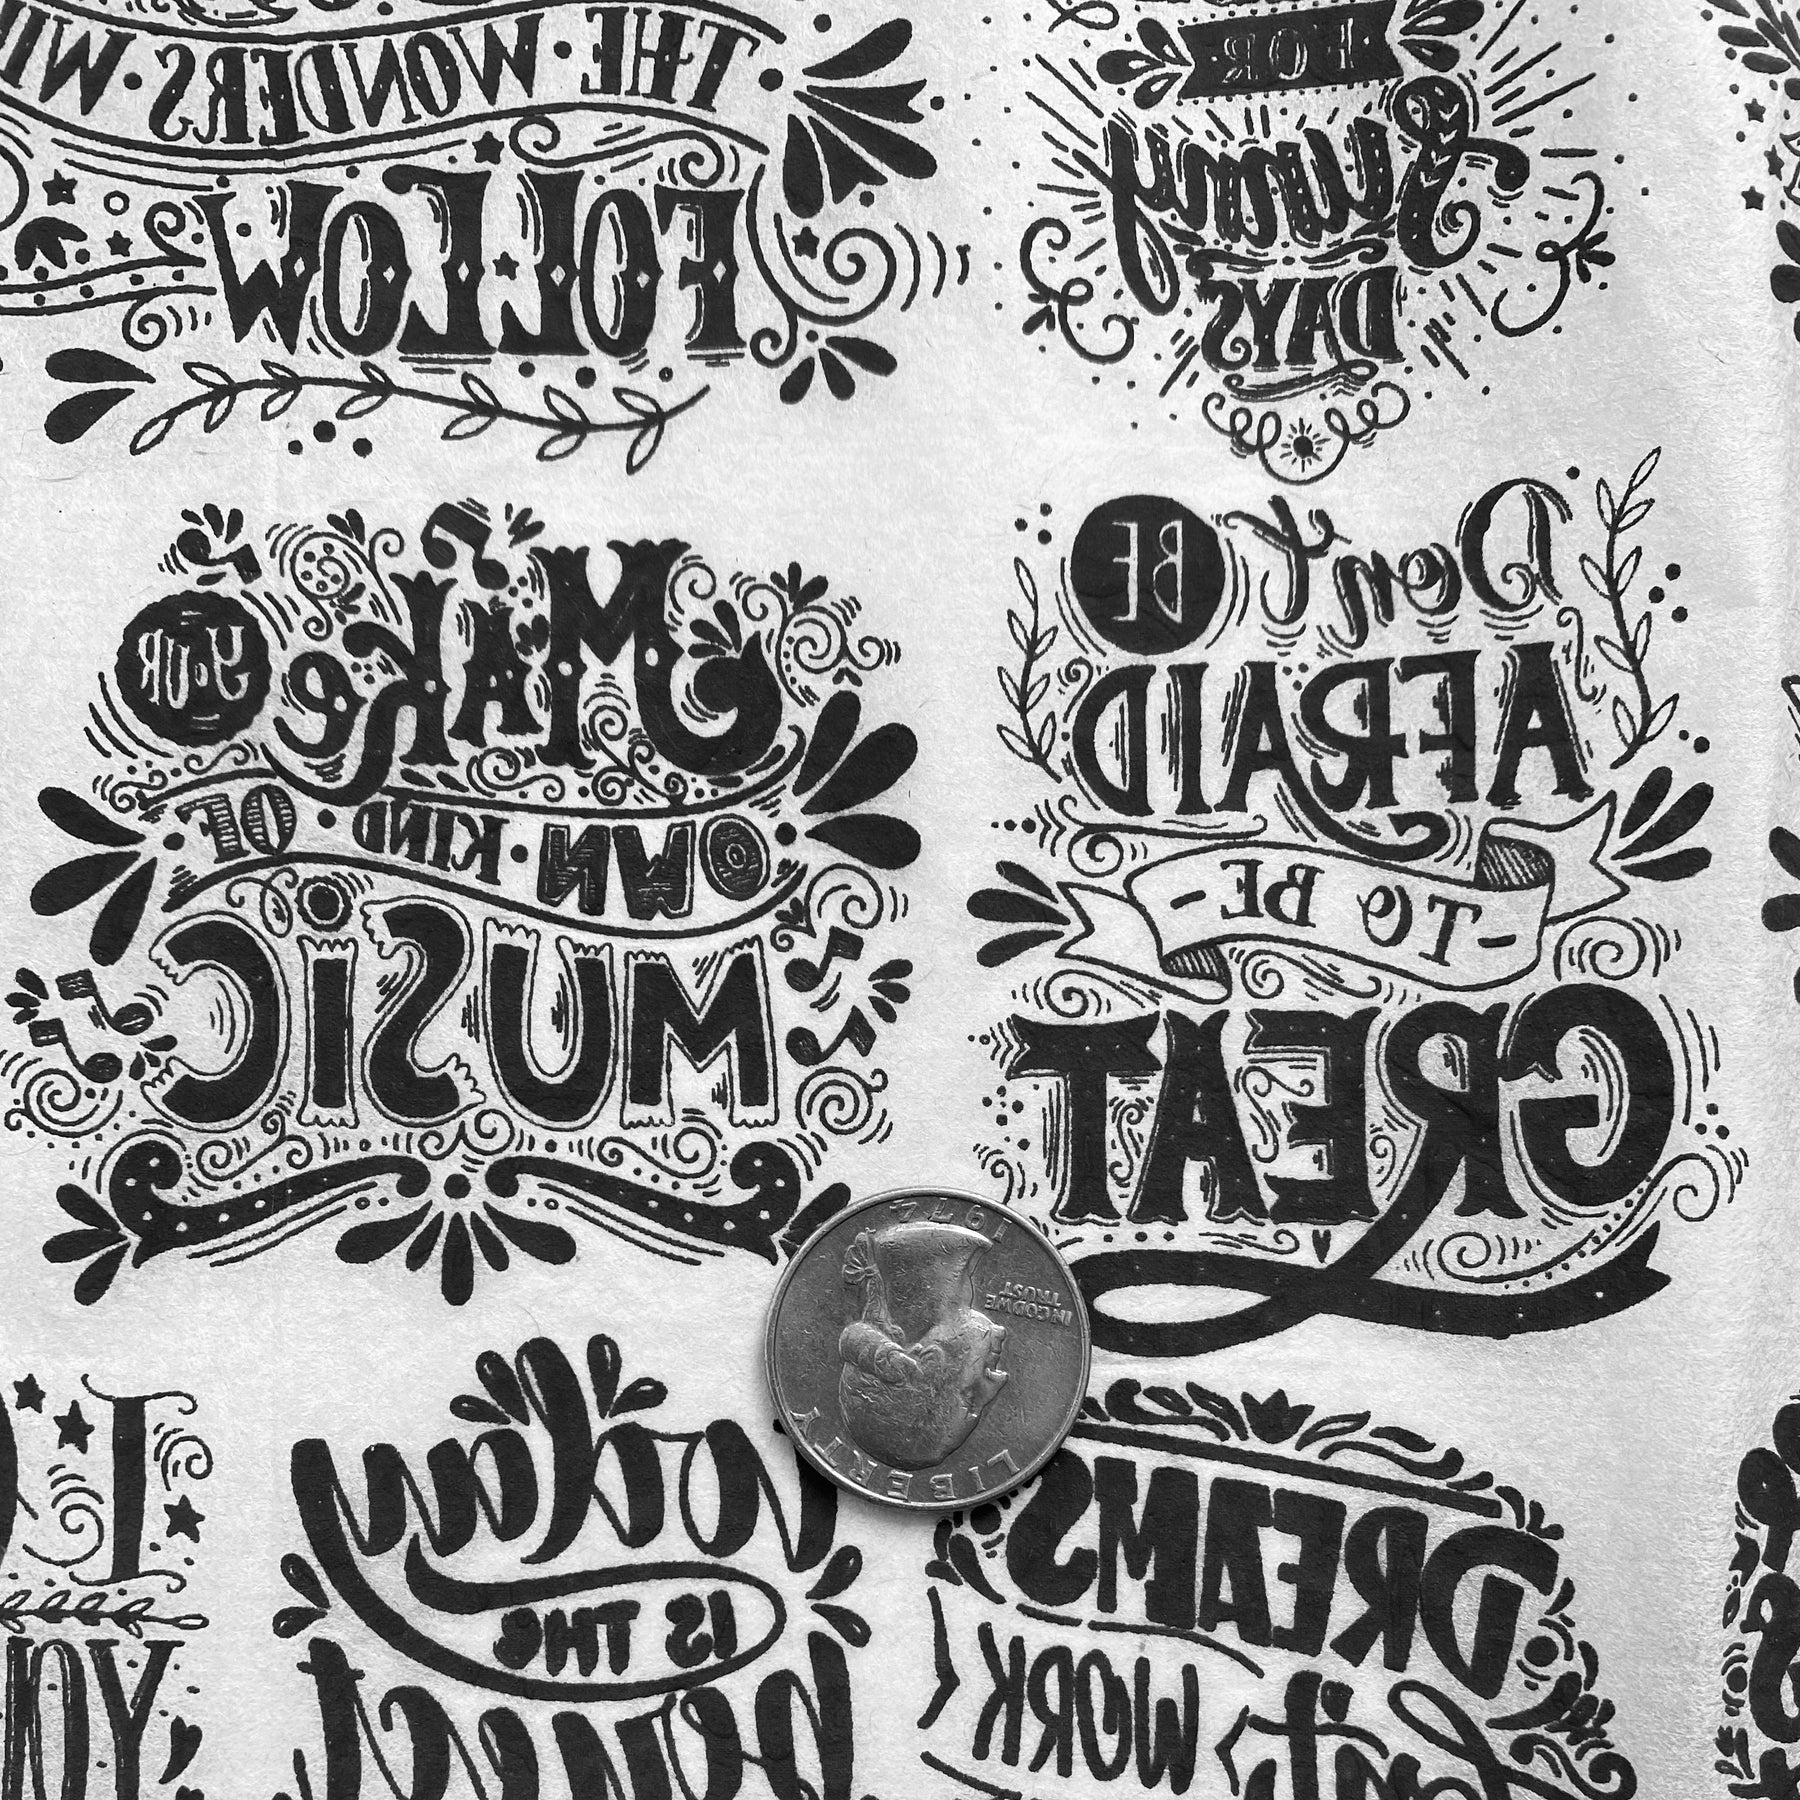 THE · WONDERS
FOLLOW
FOR
Sunny
DAYS
MaKe YOUR
OWN · KIND · OF
MUSiC
Don't BE
AFRAID
- TO BE -
GREAT
1974
IN GOD WE
TRUST
LIBERTY
I
YOU
today
IS THE
perfect
DREAMS
WORK